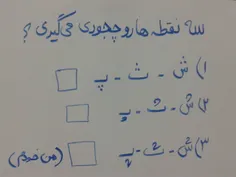 سه نقطه ها رو چجوری می‌گیری ؟
۱) ش - ث - پ
۲) ش - ث - پ
۳) ش - ث - پ (من خودم)